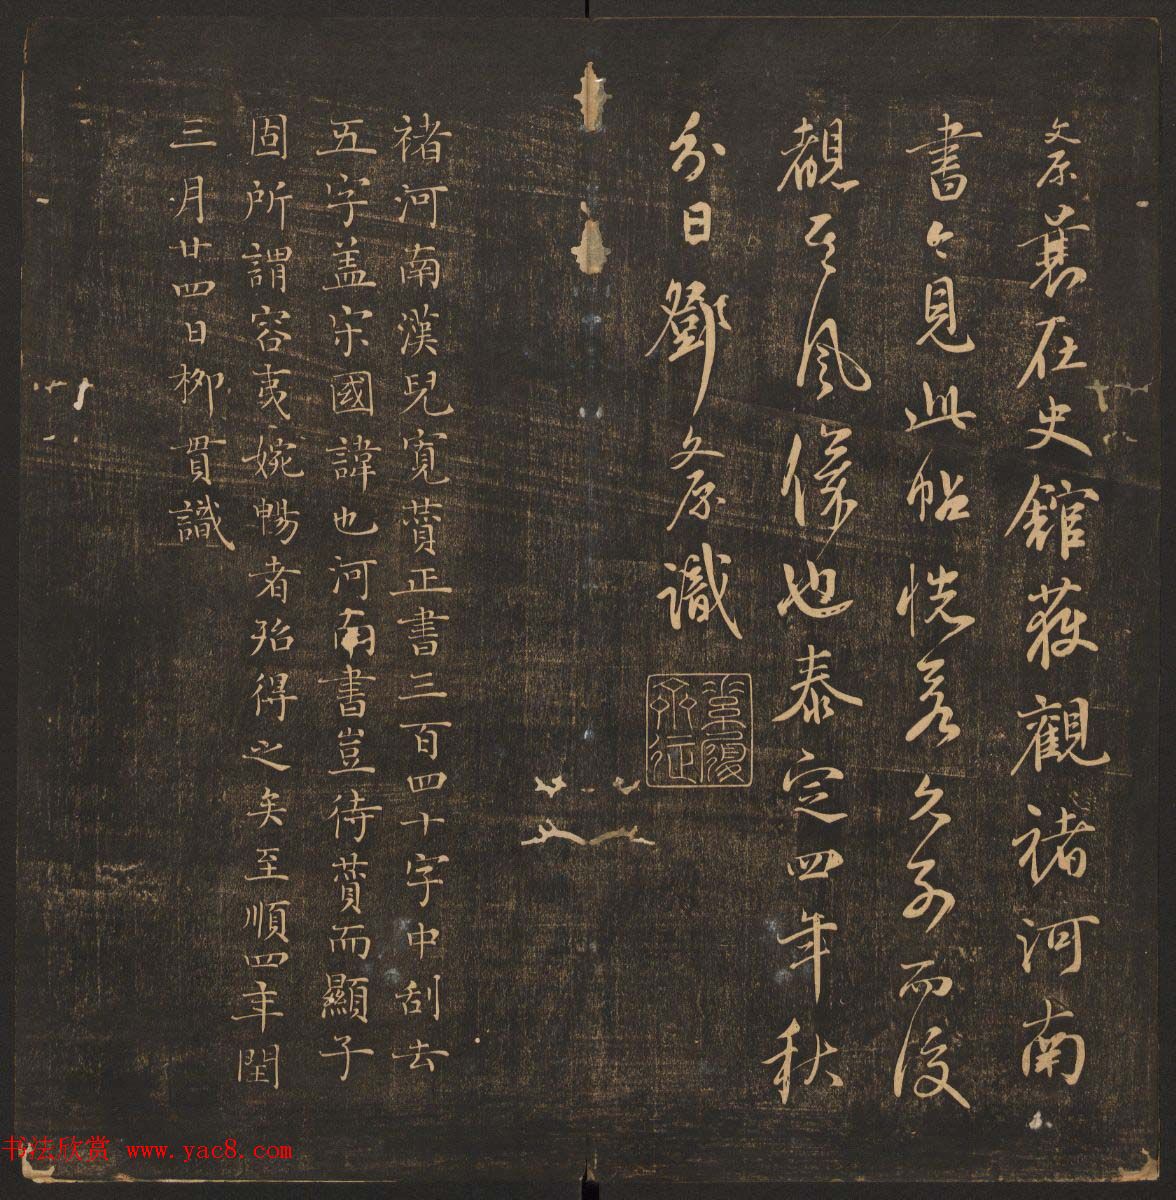 文原曩在史館獲觀褚河南
書今見此帖恍若久別而復
覩其風儀也泰定四年秋
分日鄧文原識
褚河南漢兒寬贊正書三百四十字中刮去
五字蓋宋國諱也河南書豈待贊而顯子
固所謂容夷婉暢者殆得之矣至順四年閏
三月廿四日柳貫識
书法欣赏 www.yac8.com